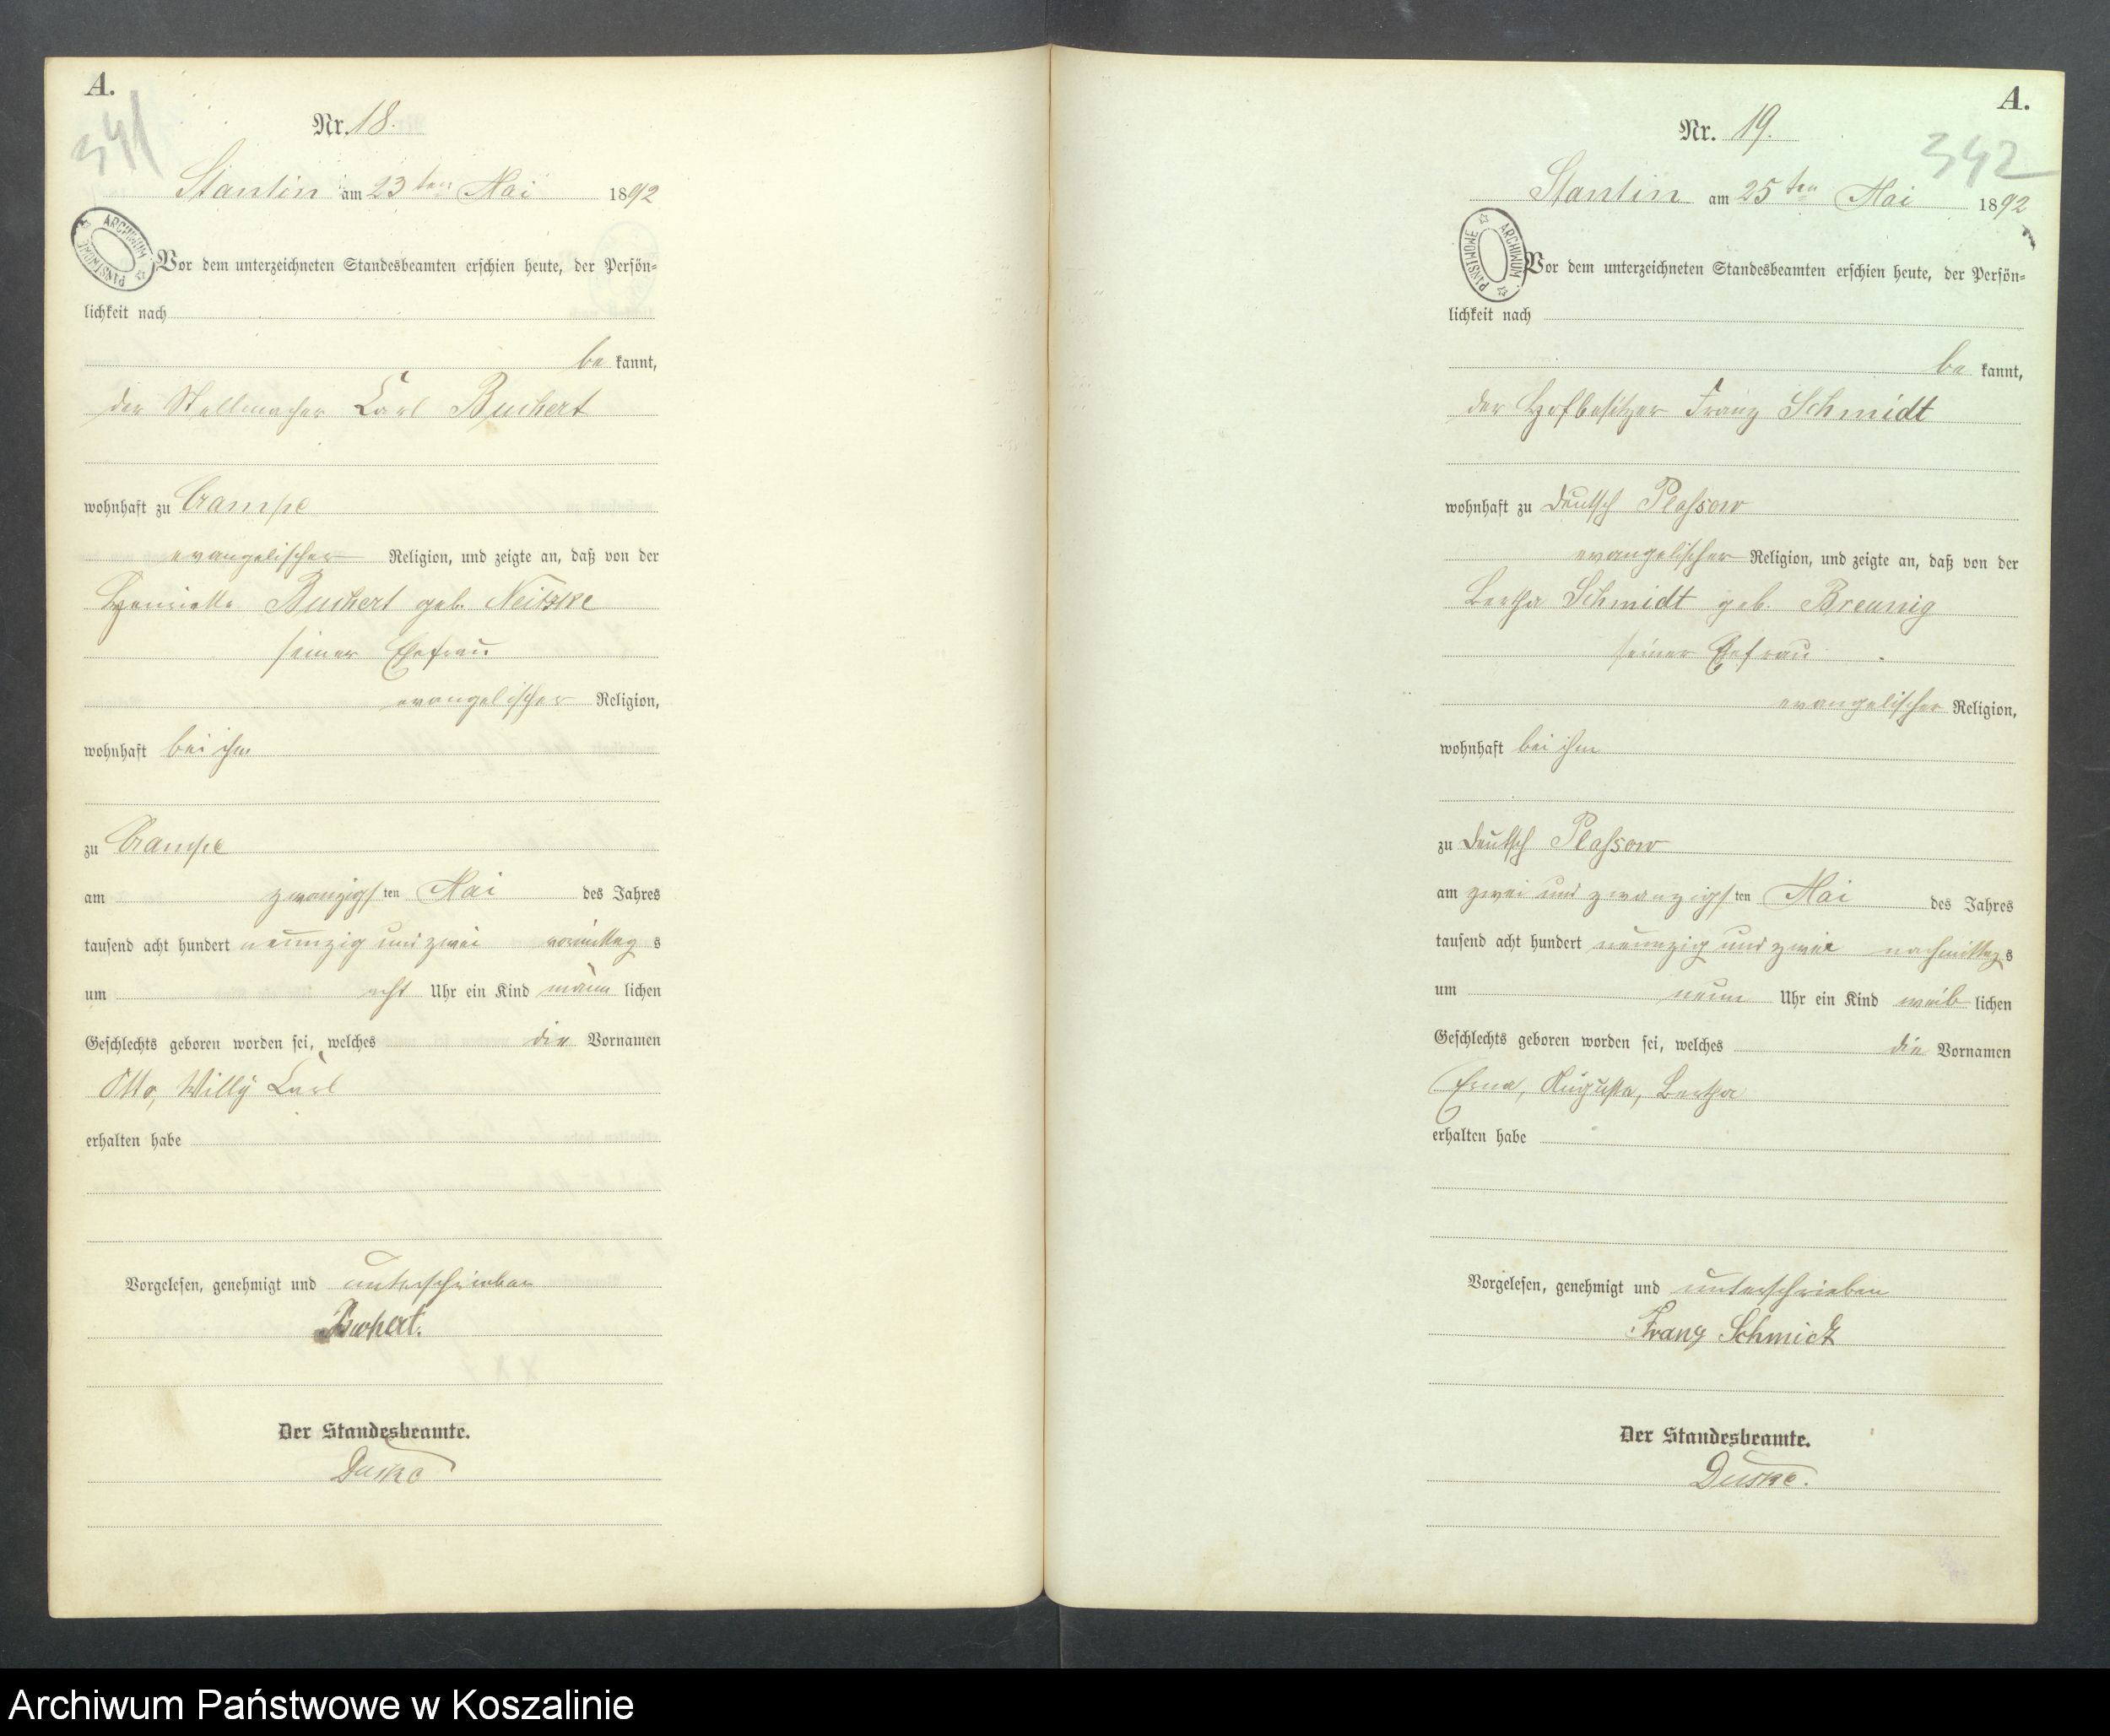 A.
341
Nr. 18.
Stantin am 23ten Mai 1892
ARCHIWUM PAŃSTWOWE
Vor dem unterzeichneten Standesbeamten erschien heute, der Persön=
lichkeit nach
be kannt,
der Stellmacher Carl Buchert
wohnhaft zu Crampe
evangelischer Religion, und zeigte an, daß von der
Henriette Buchert geb. Neitzke
seiner Ehefrau
evangelischer Religion,
wohnhaft bei ihm
zu Crampe
am zwanzigsten Mai des Jahres
tausend acht hundert neunzig und zwei vormittags
um acht Uhr ein Kind männlichen
Geschlechts geboren worden sei, welches die Vornamen
Otto, Willy Carl
erhalten habe
Vorgelesen, genehmigt und unterschrieben
Buchert.
Der Standesbeamte.
Duske
A.
342
Nr. 19.
Stantin am 25ten Mai 1892
ARCHIWUM PAŃSTWOWE
Vor dem unterzeichneten Standesbeamten erschien heute, der Persön=
lichkeit nach
be kannt,
der Hofbesitzer Franz Schmidt
wohnhaft zu Deutsch Plassow
evangelischer Religion, und zeigte an, daß von der
Bertha Schmidt geb. Breunig
seiner Ehefrau
evangelischer Religion,
wohnhaft bei ihm
zu Deutsch Plassow
am zwei und zwanzigsten Mai des Jahres
tausend acht hundert neunzig und zwei nachmittags
um neun Uhr ein Kind weiblichen
Geschlechts geboren worden sei, welches die Vornamen
Erna, Auguste, Bertha
erhalten habe
Vorgelesen, genehmigt und unterschrieben
Franz Schmidt
Der Standesbeamte.
Duske.
Archiwum Państwowe w Koszalinie